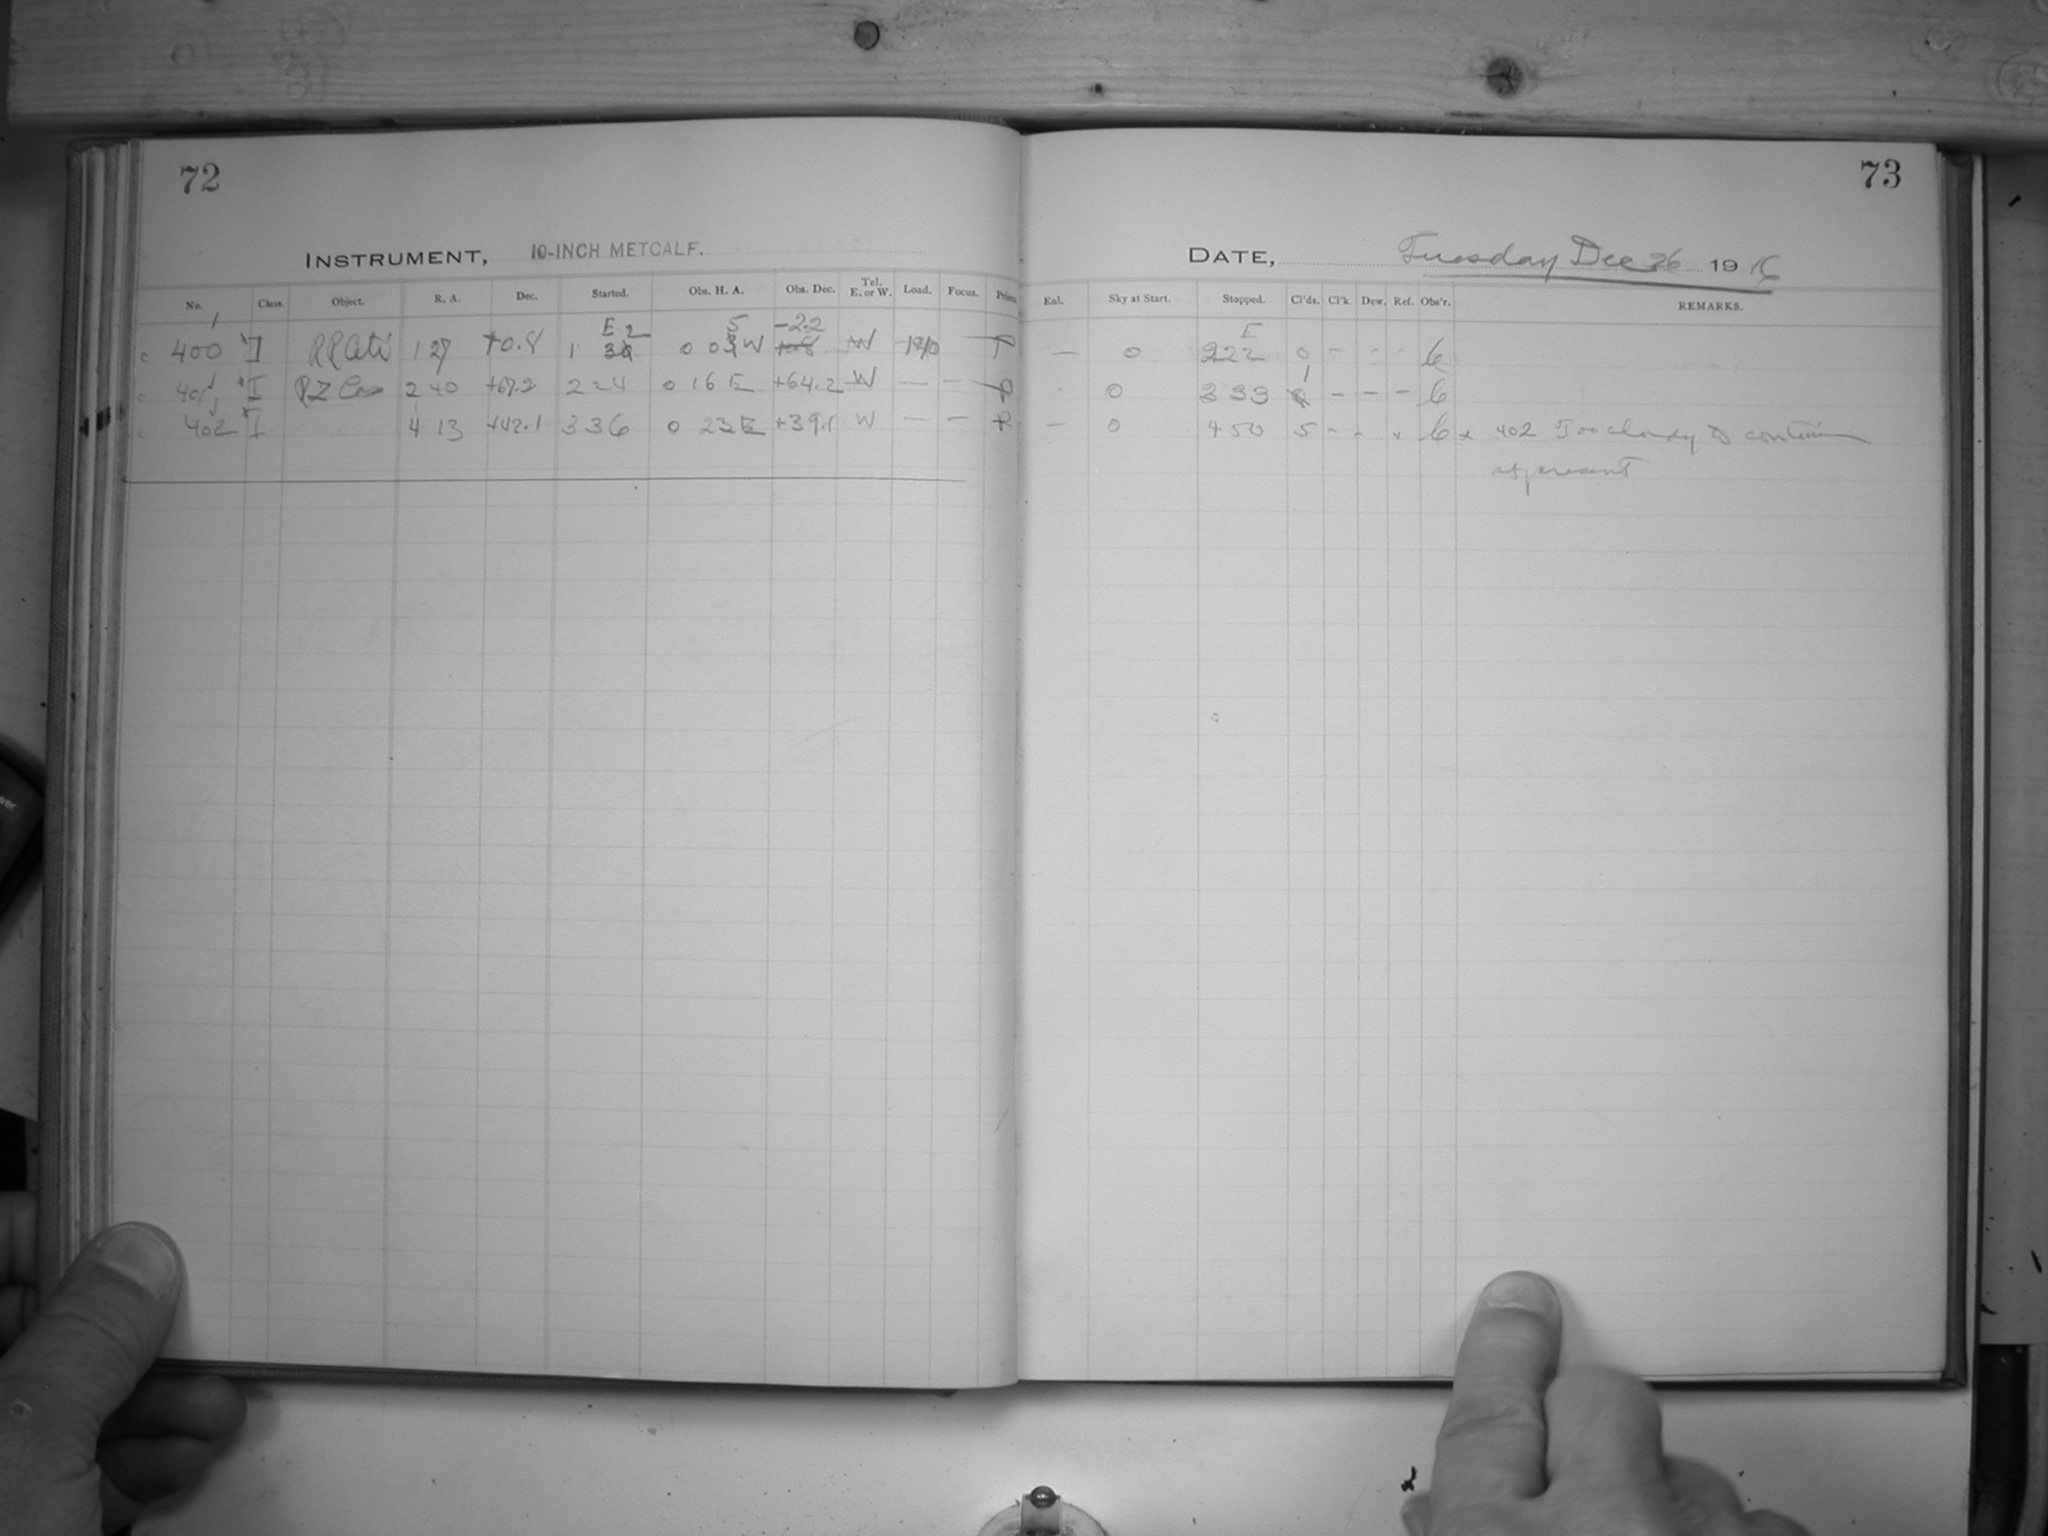 72
73
INSTRUMENT, 10-INCH METCALF.
DATE, Tuesday Dec 26 1916
No. Class. Object. R. A. Dec. Started. Obs. H. A. Obs. Dec. Tel. E. or W. Load. Focus. Prism
Enl. Sky at Start. Stopped. Cl'ds. Cl'k. Dew. Ref. Obs'r. REMARKS.
E 2 5 -2.2 E
c 400 I RR Ceti 1 27 +0.8 1 0 0 W W T — 0 222 0 - - - 6
1
c 401 I RZ Cas 2 40 +67.2 2 24 0 16 E +64.2 W — - - 0 333 - - - 6
402 I 4 13 +42.1 3 36 0 23 E +39.1 W — — — 0 4 50 5 - - 6 x 402 Too cloudy to continue
at present